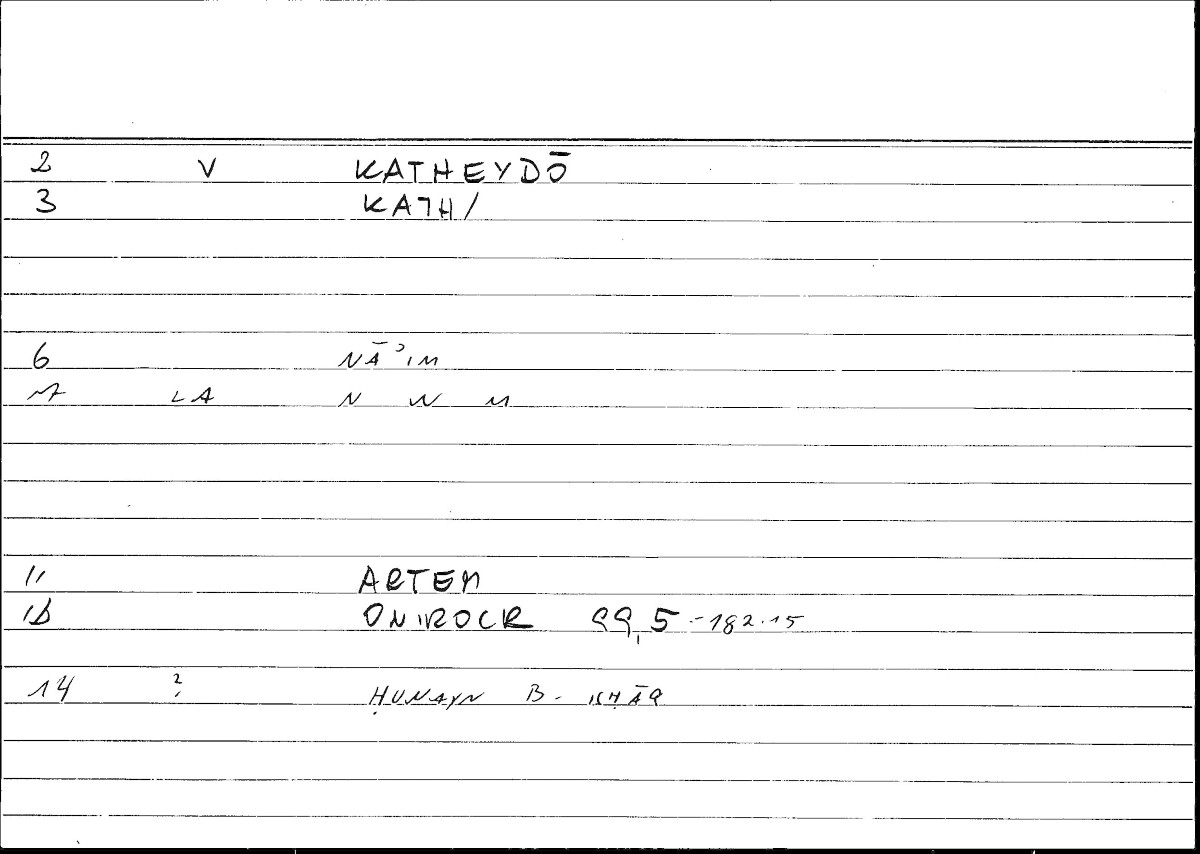 2 V KATHEYDŌ
3 KATH/
6 NĀʾIM
7 LA N W M
11 ARTEM
12 ONIROCR 99,5 - 182.15
14 ? ḤUNAYN B. ISḤĀQ